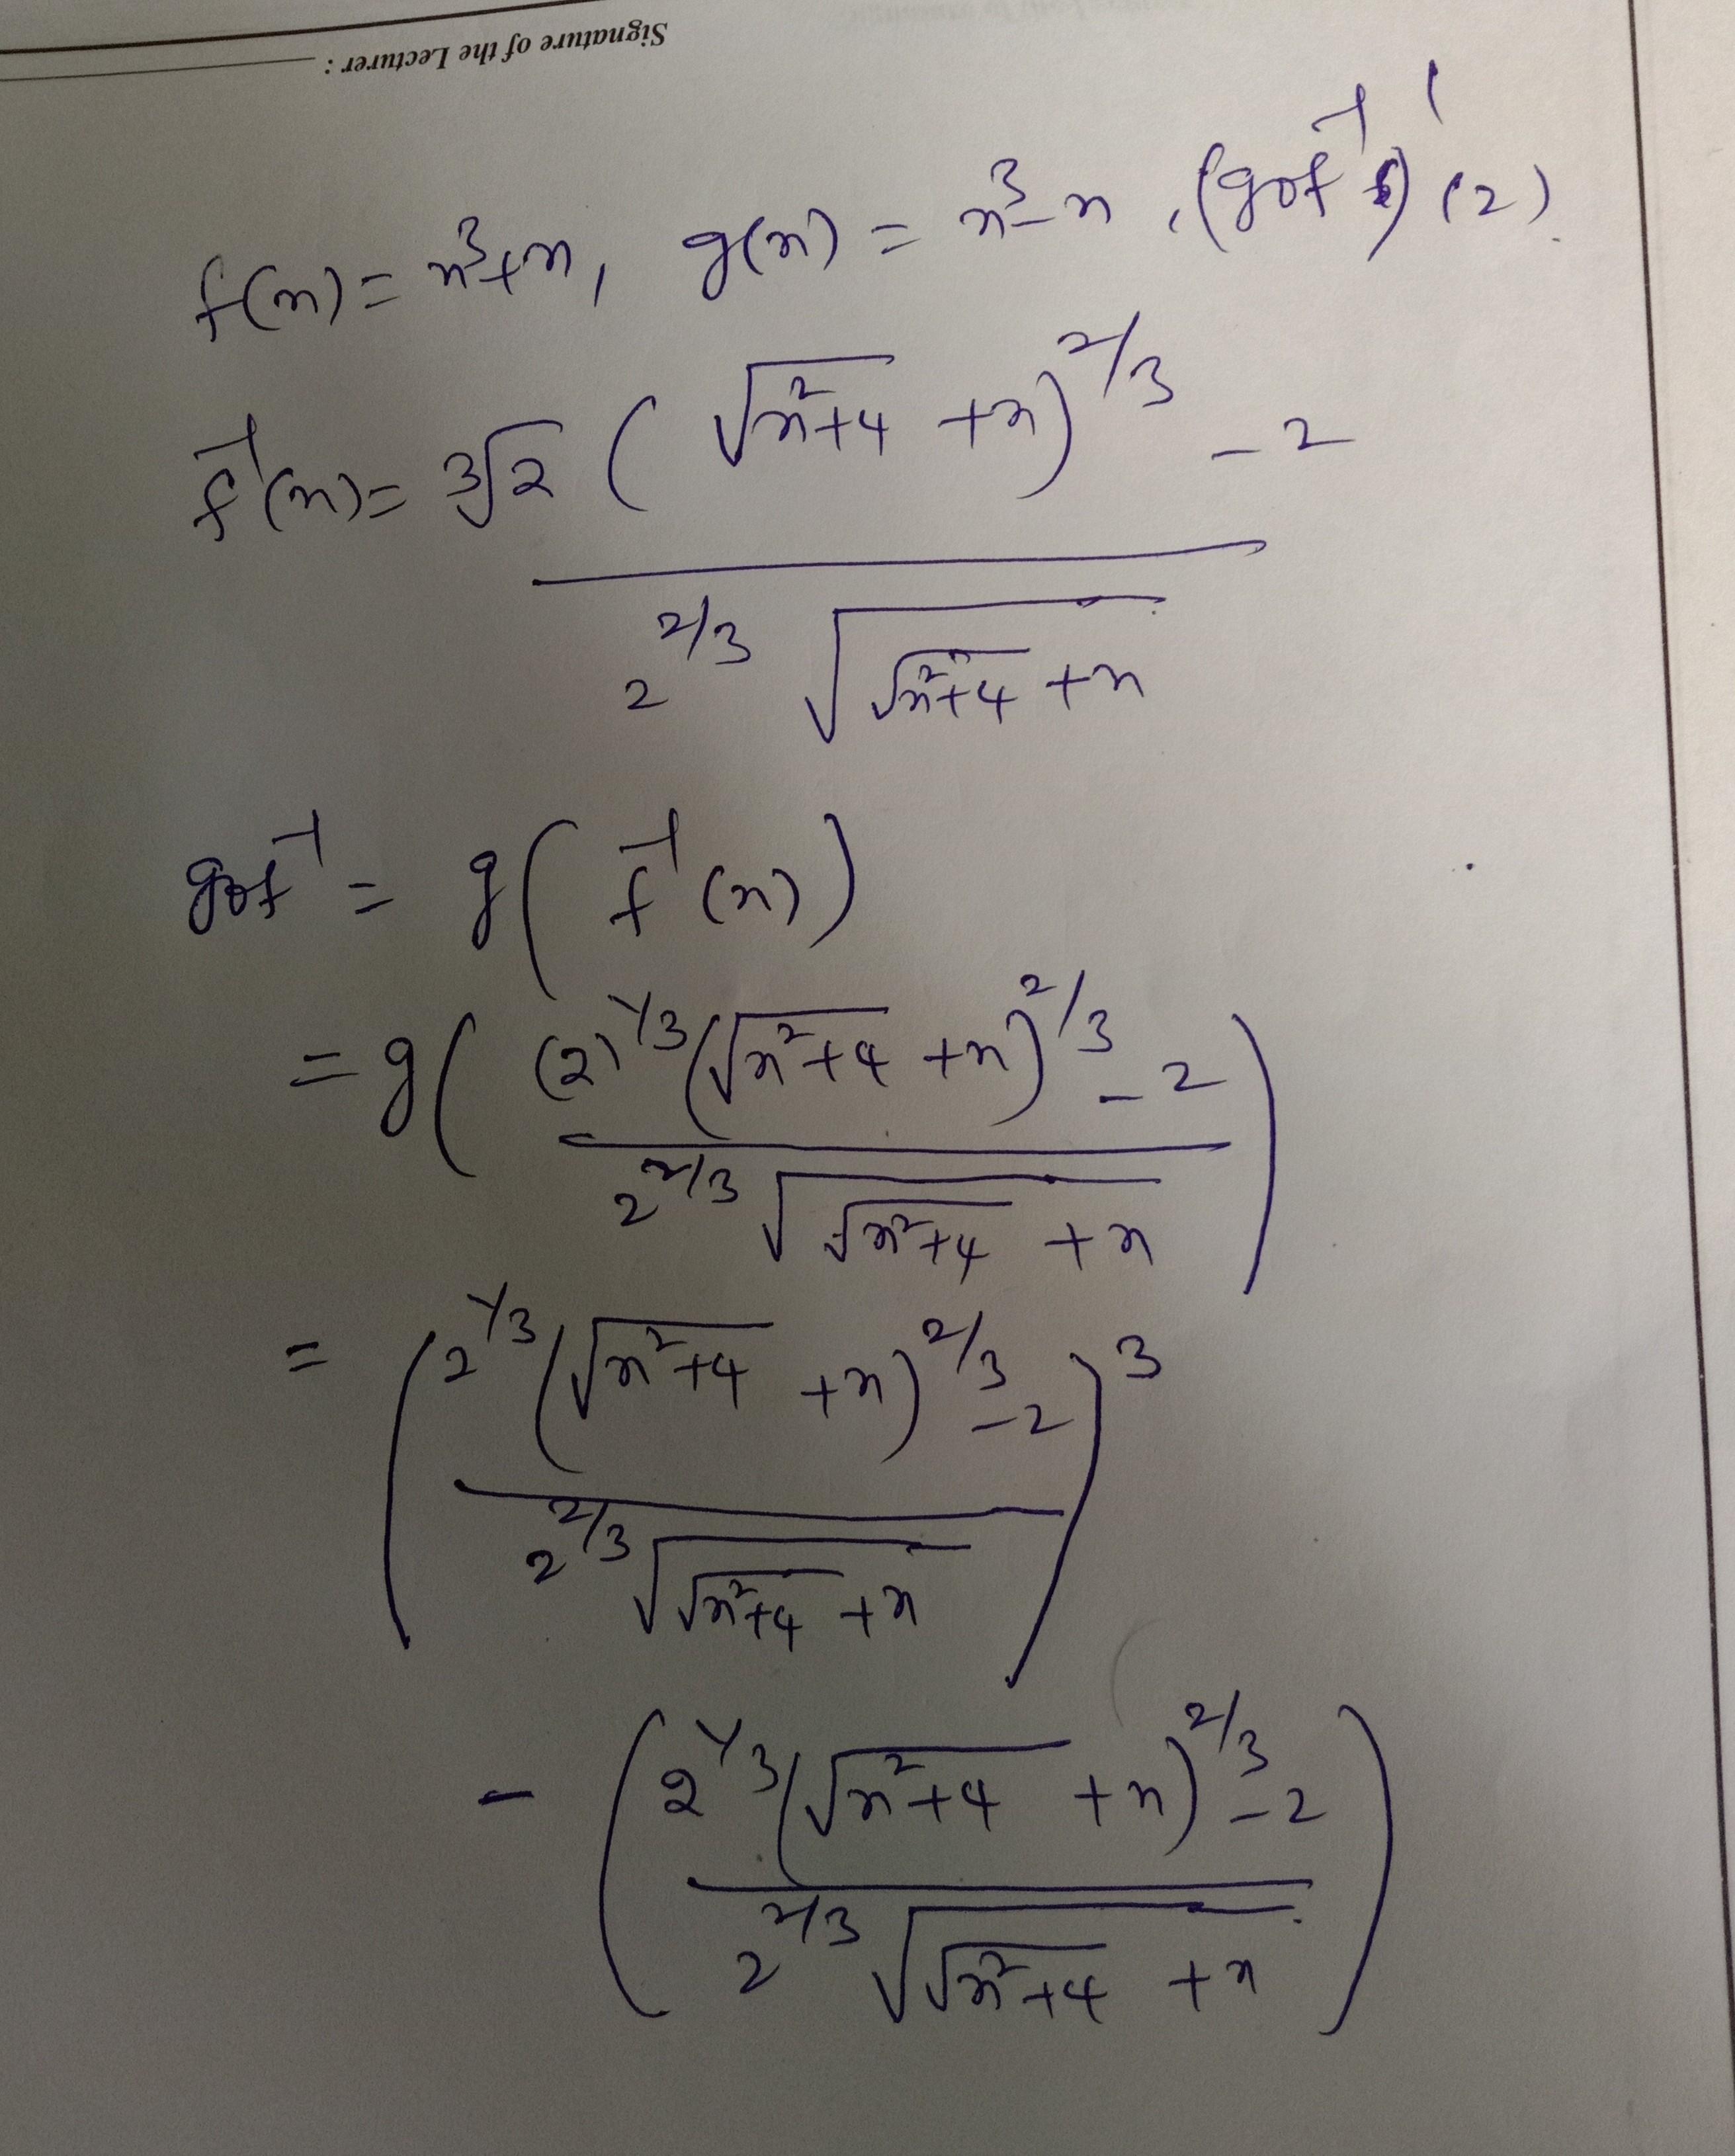 Signature of the Lecturer :
f(x) = x³+x, g(x) = x³-x, (gof⁻¹)' (2).
f⁻¹(x) = ∛2 ( √(x²+4) + x)^2/3 - 2
2^2/3 √(√(x²+4) + x)
gof⁻¹ = g( f⁻¹(x))
= g( (2)^1/3 (√(x²+4) + x)^2/3 - 2
2^2/3 √(√(x²+4) + x) )
= ( 2^1/3 (√(x²+4) + x)^2/3 - 2 )³
2^2/3 √(√(x²+4) + x)
- ( 2^1/3 (√(x²+4) + x)^2/3 - 2 )
2^2/3 √(√(x²+4) + x)